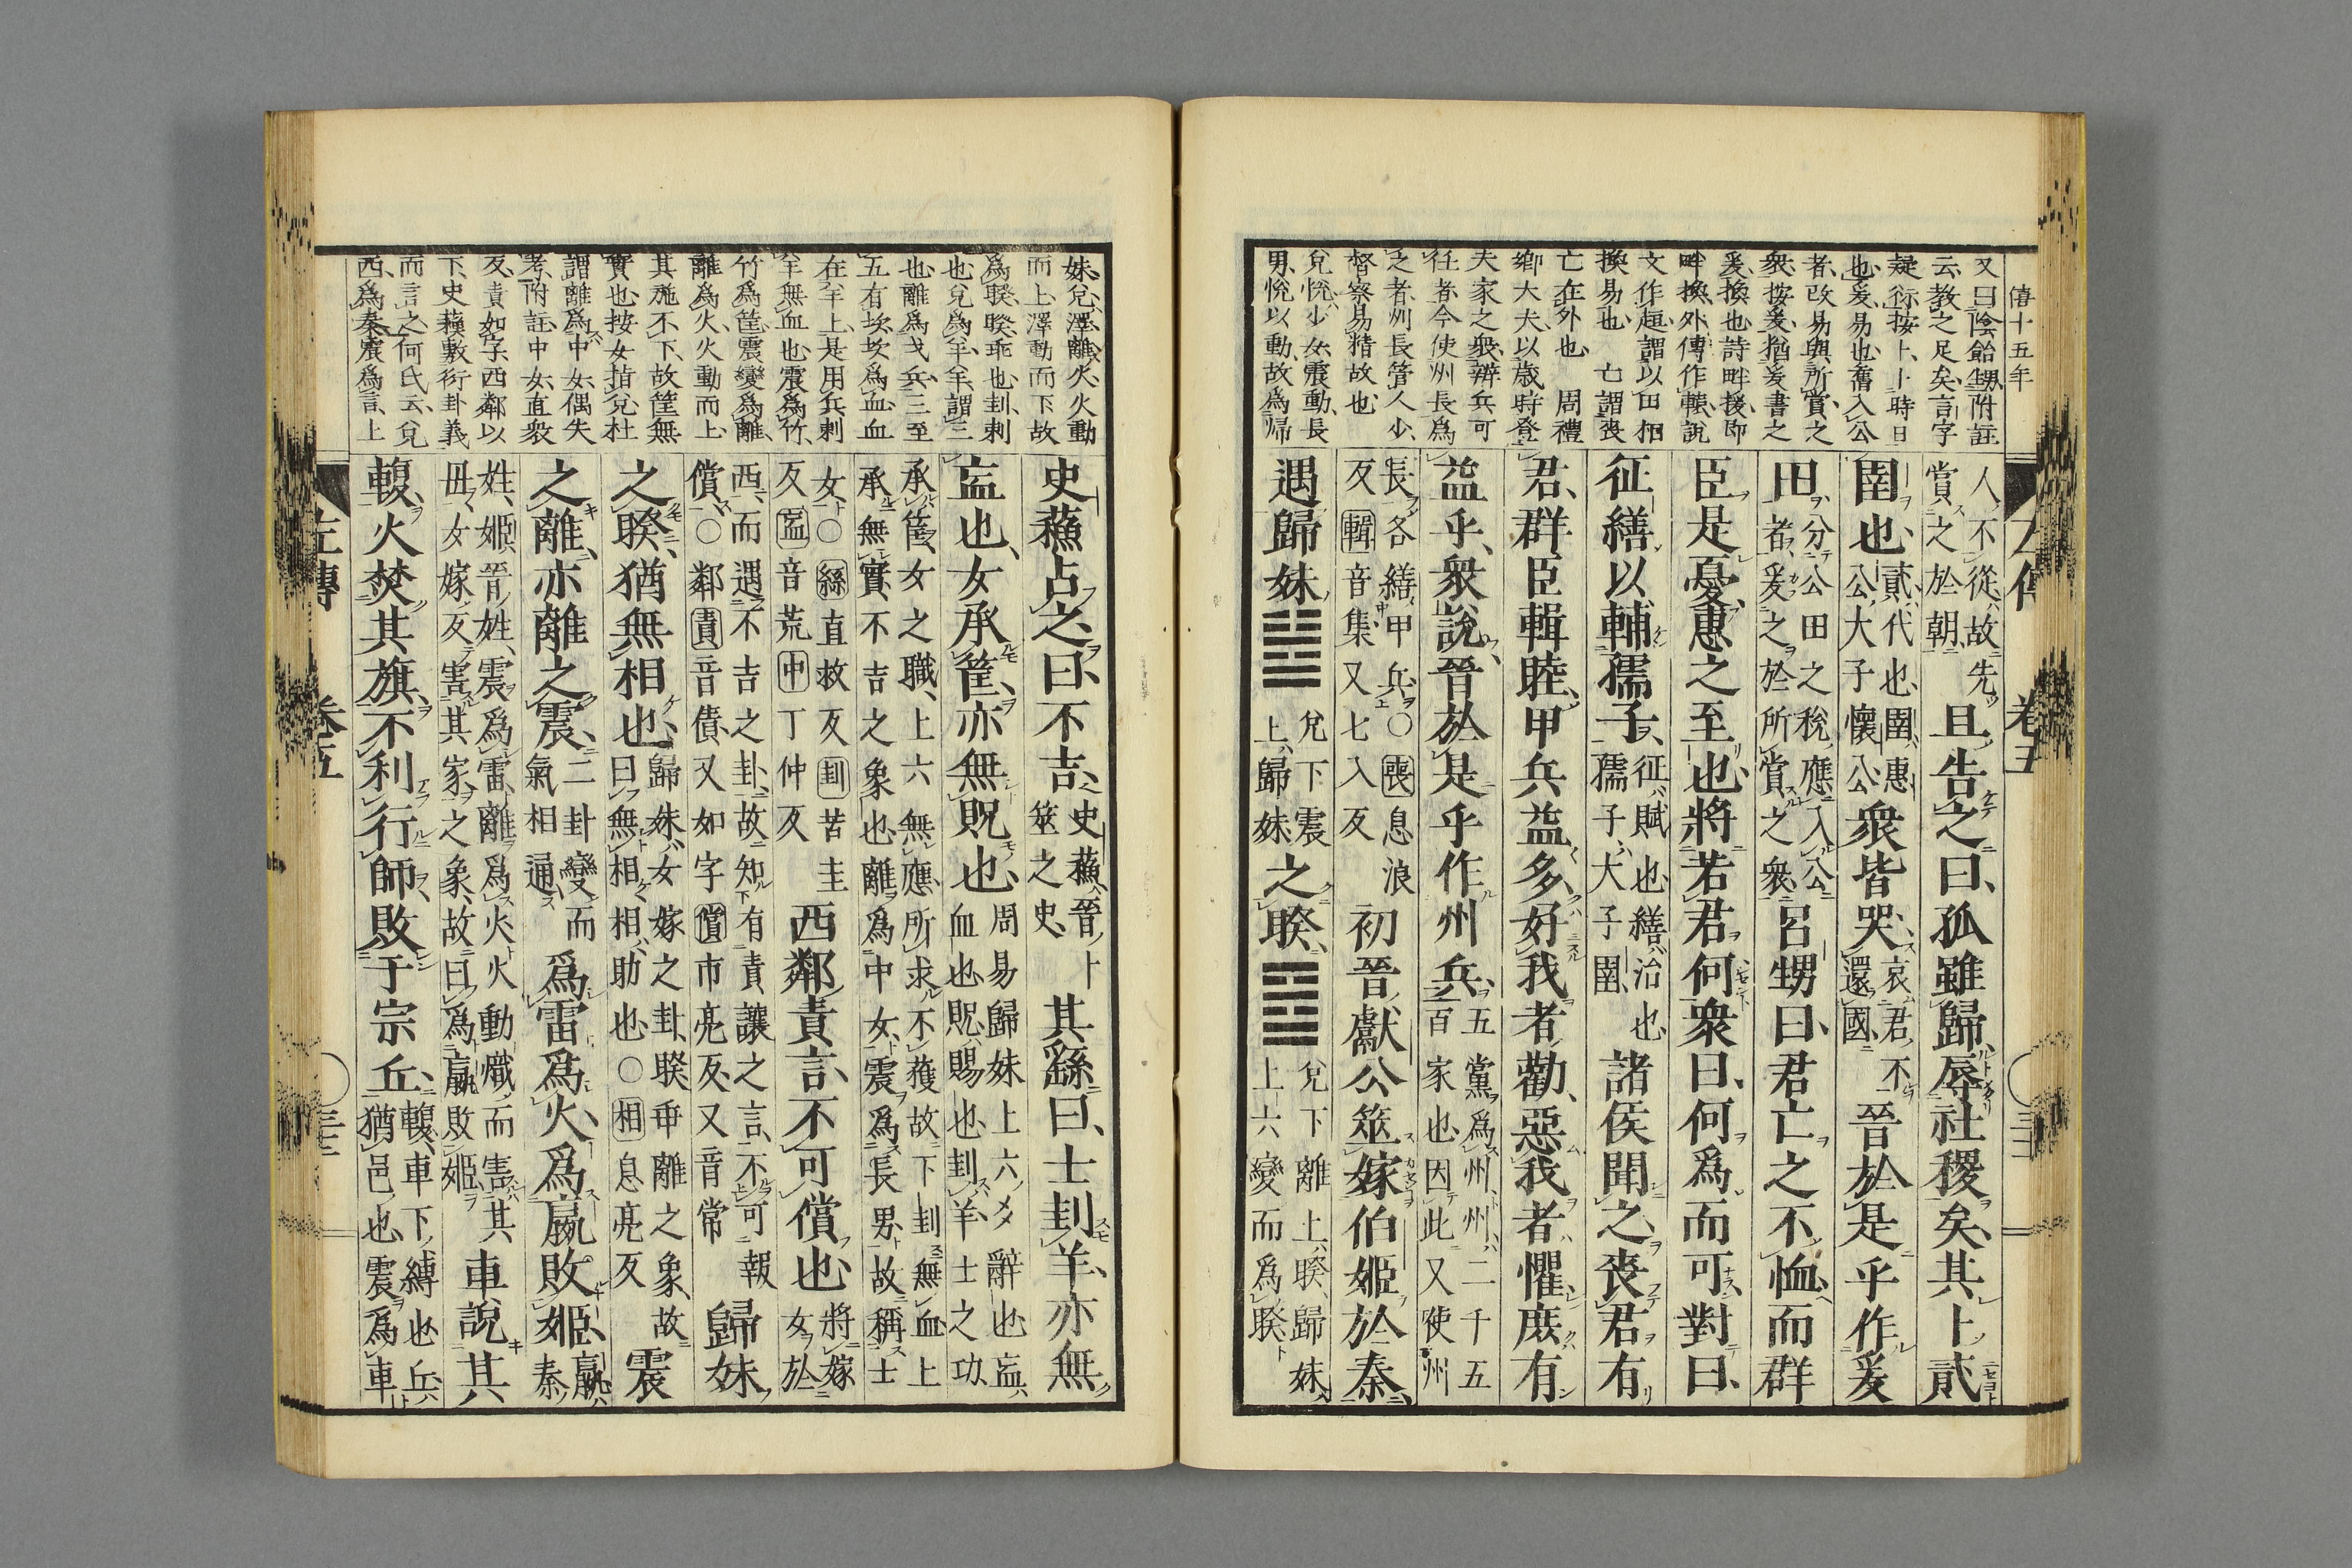 僖十五年
又曰陰飴甥附註
云教之足矣言字
疑衍按卜卜時日
也爰易也舊入公
者改易與所賞之
衆按爰猶爰書之
爰換也詩畔援即
畔換外傳作轅説
文作趄謂以田相
換易也　亡謂喪
亡在外也　周禮
鄉大夫以歳時登
夫家之衆辨兵可
任者今使州長爲
之者州長管人少
督察易精故也
兌悅少女震動長
男悅以動故爲歸
人不從故先
賞之於朝
且告之曰孤雖歸辱社稷矣其卜貳
圉也
貳代也圉惠
公大子懷公
衆皆哭
哀君不
還國
晉於是乎作爰
田
分公田之稅應入公
者爰之於所賞之衆
呂甥曰君亡之不恤而群
臣是憂惠之至也將若君何衆曰何爲而可對曰
征繕以輔孺子
征賦也繕治也
孺子大子圉
諸侯聞之喪君有
君群臣輯睦甲兵益多好我者勸惡我者懼庶有
益乎衆說晉於是乎作州兵
五黨爲州州二千五
百家也因此又使州
長各繕甲兵○喪息浪
反輯音集又七入反
初晉獻公筮嫁伯姬於秦
遇歸妹䷵
兌下震
上歸妹
之睽䷥
兌下離上睽歸妹
上六變而爲睽
左傳　卷五
妹兌澤離火火動
而上澤動而下故
爲睽睽乖也刲刺
也兌爲羊羊謂三
也離爲戈兵三至
五有坎坎爲血血
在羊上是用兵刺
羊無血也震爲竹
竹爲筐震變爲離
離爲火火動而上
其施不下故筐無
實也按女指兌杜
謂離爲中女偶失
考附註中女直裂
反責如字西鄰以
下史蘇敷衍卦義
而言之何氏云兌
西爲秦震爲言上
史蘇占之曰不吉
史蘇晉卜
筮之史
其繇曰士刲羊亦無
衁也女承筐亦無貺也
周易歸妹上六爻辭也衁
血也貺賜也刲羊士之功
承筐女之職上六無應所求不獲故下刲無血上
承無實不吉之象也離爲中女震爲長男故稱士
女○繇直救反刲苦圭
反衁音荒中丁仲反
西鄰責言不可償也
將嫁
女於
西而遇不吉之卦故知有責讓之言不可報
償○鄰責音債又如字償市亮反又音常
歸妹
之睽猶無相也
歸妹女嫁之卦睽乖離之象故
曰無相相助也○相息亮反
震
之離亦離之震
二卦變而
氣相通
爲雷爲火爲嬴敗姬
嬴
秦
姓姬晉姓震爲雷離爲火火動熾而害其
母女嫁反害其家之象故曰爲嬴敗姬
車說其
輹火焚其旗不利行師敗于宗丘
輹車下縛也丘
猶邑也震爲車
左傳　卷五